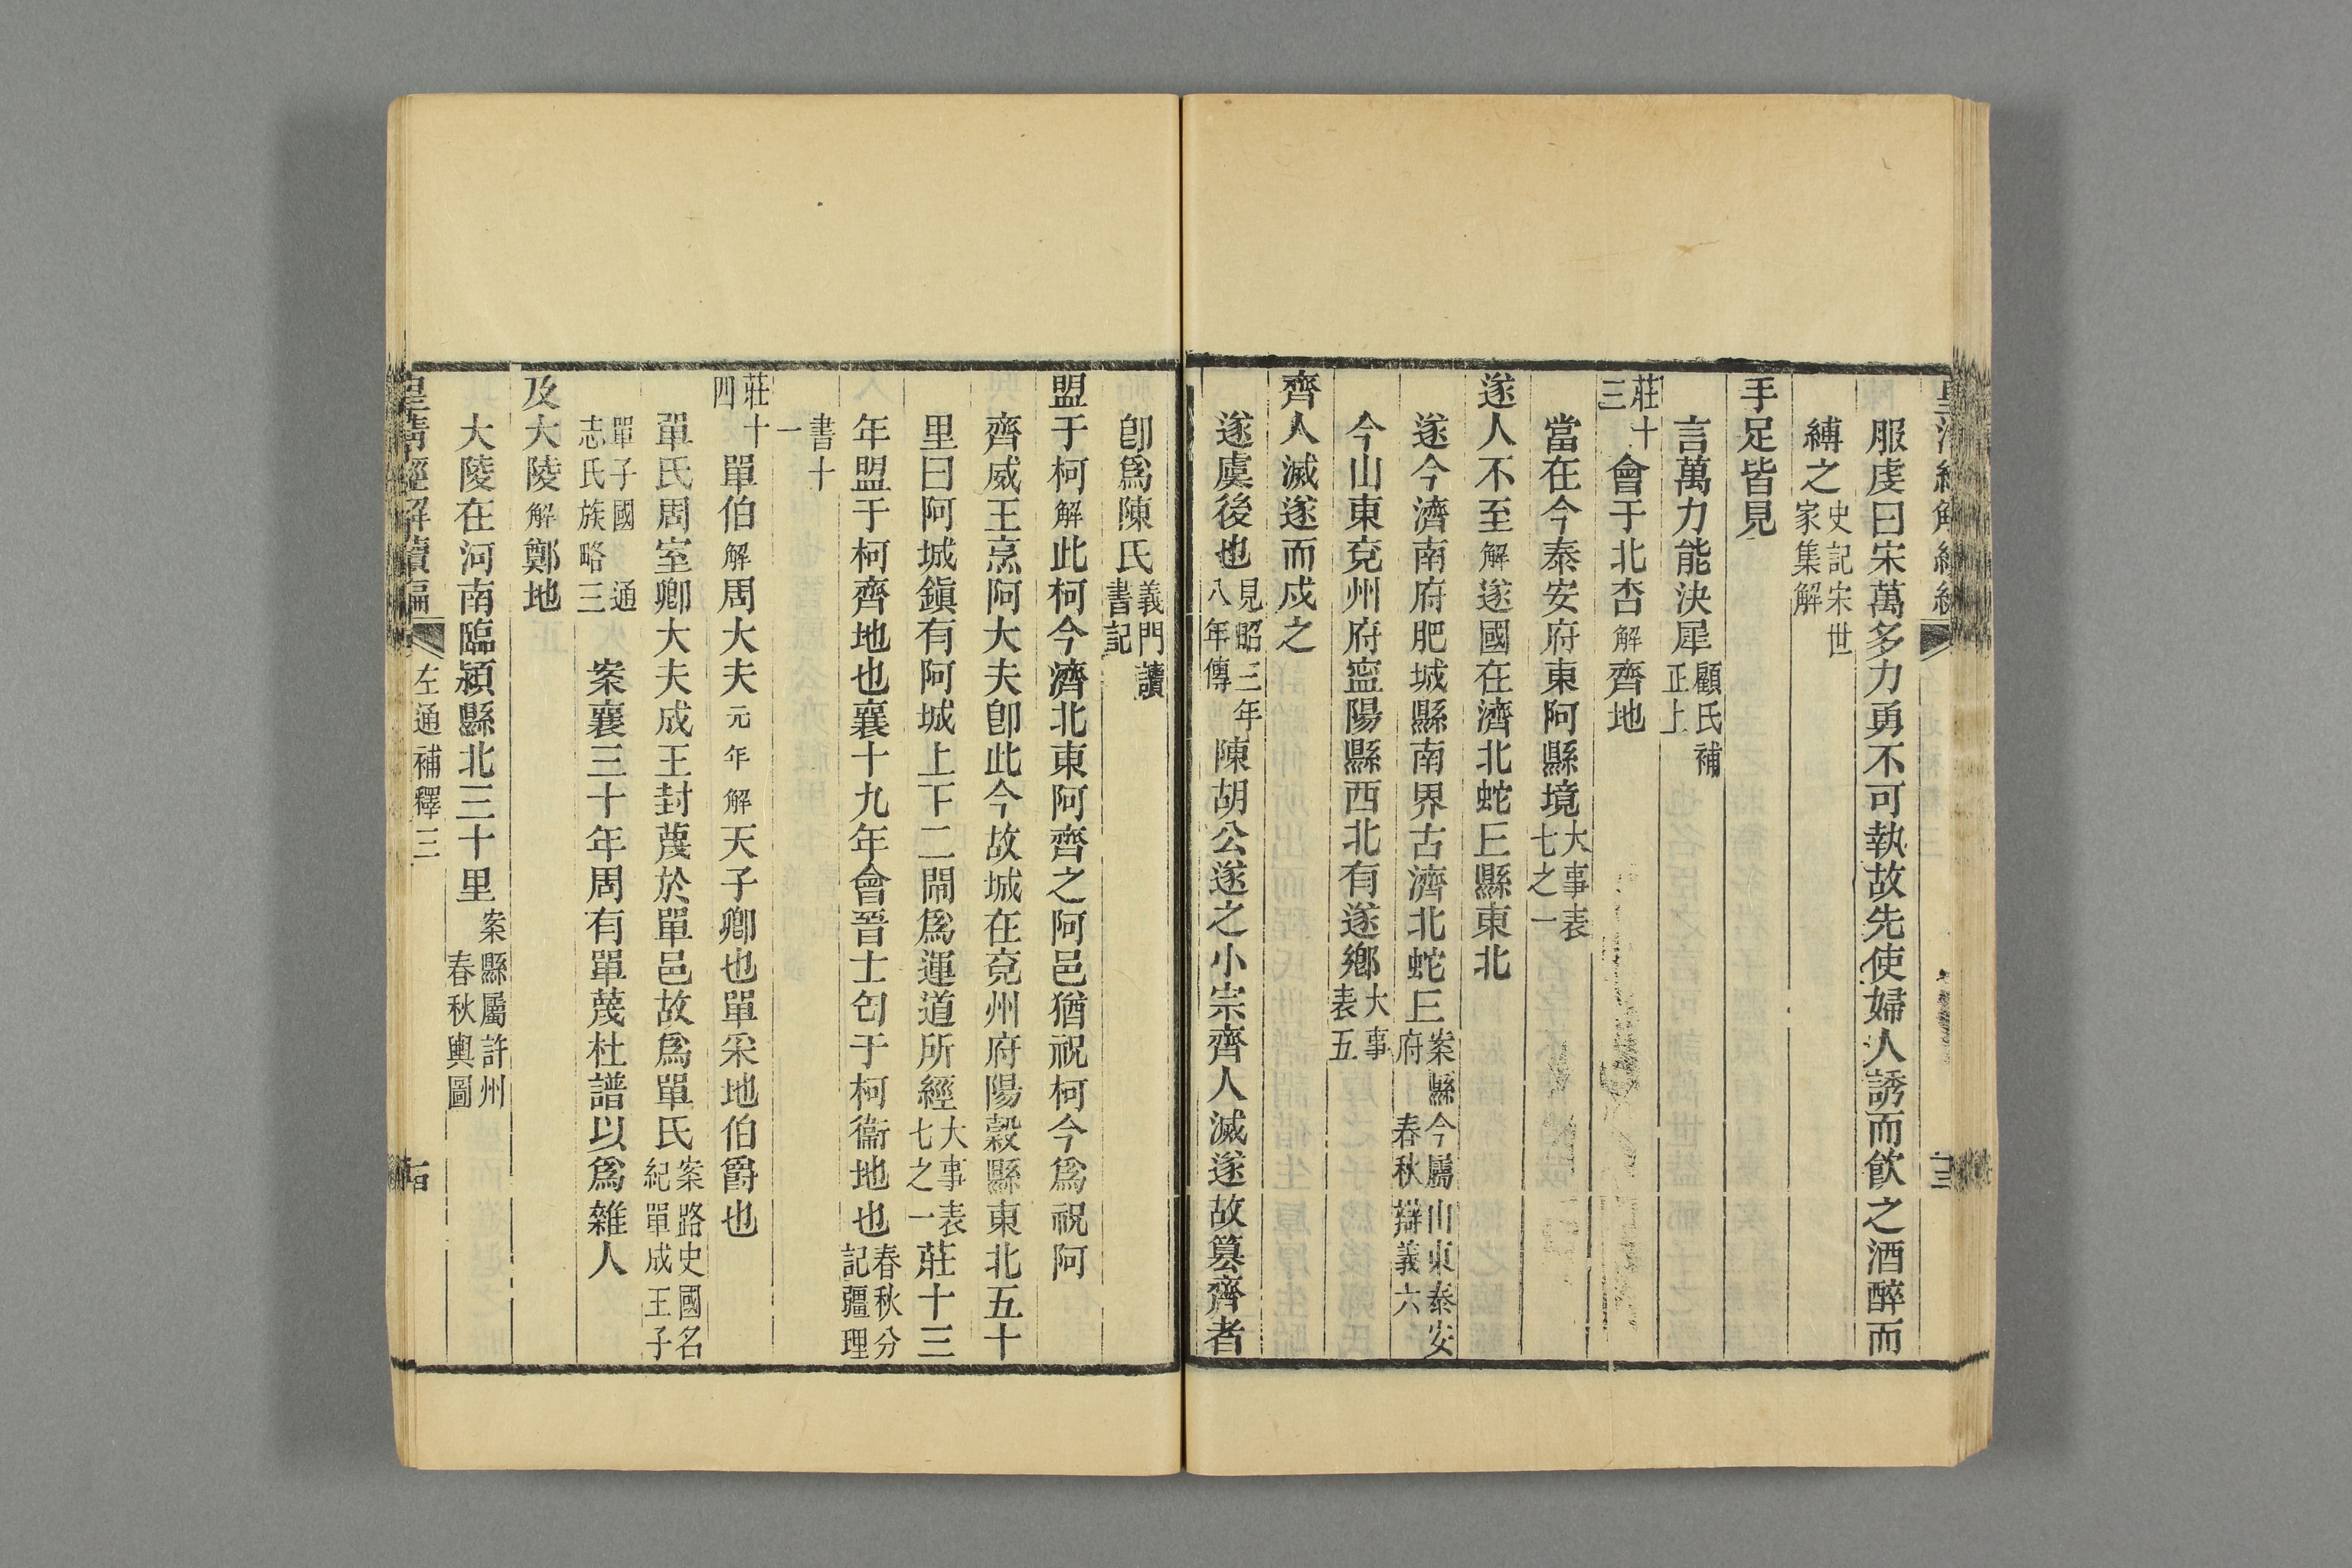 服虔曰宋萬多力勇不可執故先使婦人誘而飮之酒醉而
縛之史記宋世家集解
手足皆見
言萬力能決犀顧氏補正上
莊十三會于北杏解齊地
當在今泰安府東阿縣境大事表七之一
遂人不至解遂國在濟北蛇𠀉縣東北
遂今濟南府肥城縣南界古濟北蛇𠀉案縣今屬山東泰安府 春秋辯義六
今山東兗州府寍陽縣西北有遂鄕大事表五
齊人滅遂而戍之
遂虞後也見昭三年八年傳陳胡公遂之小宗齊人滅遂故簒齊者
卽爲陳氏義門讀書記
盟于柯解此柯今濟北東阿齊之阿邑猶祝柯今爲祝阿
齊威王烹阿大夫卽此今故城在兗州府陽榖縣東北五十
里曰阿城鎭有阿城上下二閘爲運道所經大事表七之一莊十三
年盟于柯齊地也襄十九年會晉士匄于柯衞地也春秋分記疆理
書十一
莊十四單伯解周大夫元年解天子卿也單采地伯爵也
單氏周室卿大夫成王封蔑於單邑故爲單氏案路史國名紀單成王子
單子國 通志氏族略三 案襄三十年周有單蔑杜譜以爲雜人
及大陵解鄭地
大陵在河南臨潁縣北三十里案縣屬許州 春秋輿圖
皇淸經解續編 左通補釋三 十四